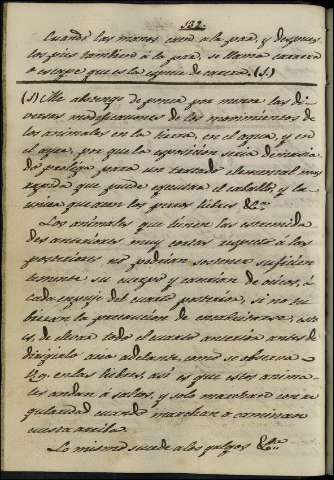 132.
Cuando las manos caen a la par, y despues
los pies tambien á la par se llama carrera
ó escape que es la especie de carrera. (S.)
(S) Me abstengo de poner por menor las di-
versas modificaciones de los movimientos de
los animales en la tierra, en el agua, y en
el ayre, por que la esposicion seria demasia-
do prolija para un tratado elemental muy
que puede egecutar el caballo, y la
única que usan los perros liebres &.ª
Los animales que tienen las estremida-
des anteriores muy cortas respecto á las
posteriores no podrian sostener suficien-
temente su cuerpo y caerian de ocicos, á
cada empuje del cuarto posterior, si no tu-
bieran la precaucion de encabritarse; esto
es, de elevar todo el cuarto anterior antes de
dirigirlo acia adelante, como se observa
v.g. en las liebres, asi es que estos anima-
les andan á saltos, y solo marchan con re-
gularidad cuando marchan ó caminan
cuesta arriba.
Lo mismo sucede a los galgos &.ª